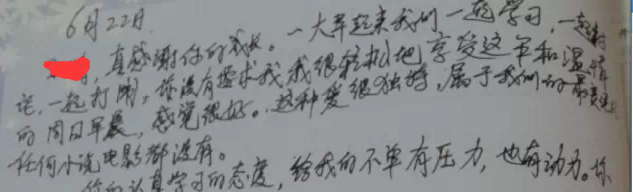 6月22日.
，真感谢你的成长。一大早起来我们一起学习，一起讨
论，一起打闹，你没有要求我，我很轻松地享受这平和温情
的周日早晨，感觉很好。这种爱很独特，属于我们的
任何小说电影都没有。
你的认真学习的态度，给我的不单有压力，也有动力。你